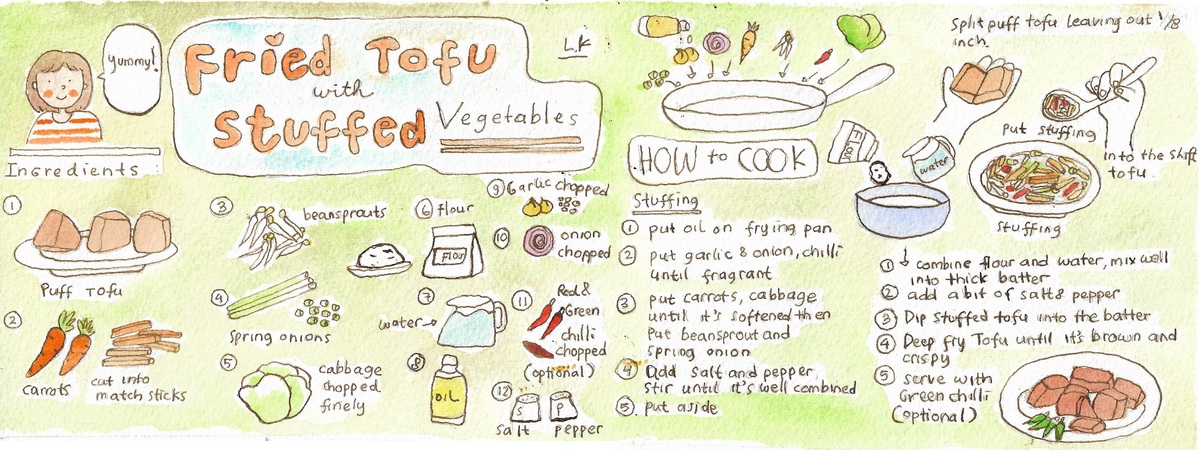 Yummy!
Fried Tofu
with
Stuffed Vegetables
L.K
Ingredients
1
Puff Tofu
2
carrots
cut into
match sticks
3
beansprouts
4
spring onions
5
cabbage
chopped
finely
6 flour
FLOUR
7
water
8
OIL
9 Garlic chopped
10 onion
chopped
11 Red &
Green
chilli
chopped
(optional)
12
S
P
salt pepper
HOW to COOK
Stuffing
1 put oil on frying pan
2 put garlic & onion, chilli
until fragrant
3 put carrots, cabbage
until it's softened then
Put beansprout and
spring onion
4 Add salt and pepper,
stir until it's well combined
5. put aside
Split puff tofu leaving out 1/8
inch.
put stuffing
into the split
tofu.
FLOUR
water
stuffing
1 combine flour and water, mix well
into thick batter
2 add a bit of salt & pepper
3 Dip stuffed tofu into the batter
4 Deep fry Tofu until it's brown and
crispy
5 serve with
Green chilli
(optional)